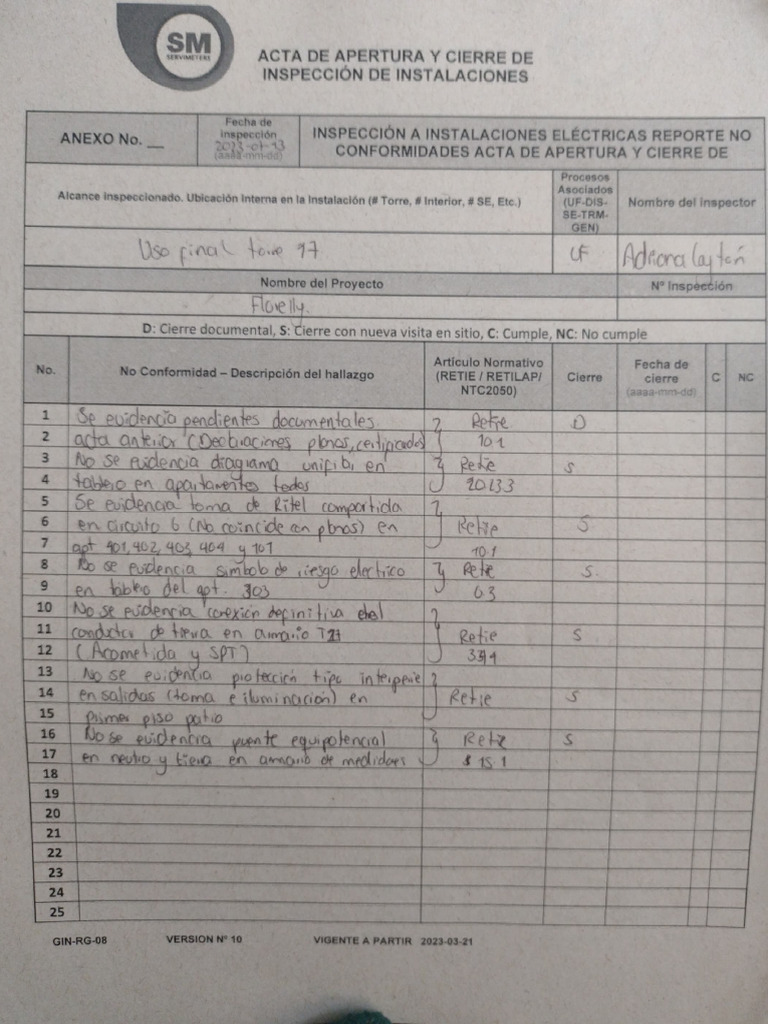 SM
SERVIMETERS
ACTA DE APERTURA Y CIERRE DE
INSPECCIÓN DE INSTALACIONES
ANEXO No. __
Fecha de
inspección
(aaaa-mm-dd)
INSPECCIÓN A INSTALACIONES ELÉCTRICAS REPORTE NO
CONFORMIDADES ACTA DE APERTURA Y CIERRE DE
Alcance Inspeccionado. Ubicación Interna en la Instalación (# Torre, # Interior, # SE, Etc.)
Procesos
Asociados
(UF-DIS-
SE-TRM-
GEN)
Nombre del Inspector
Uso final torre
UF
Adriana Laytón
Nombre del Proyecto
N° Inspección
Florelly.
D: Cierre documental, S: Cierre con nueva visita en sitio, C: Cumple, NC: No cumple
No.
No Conformidad – Descripción del hallazgo
Articulo Normativo
(RETIE / RETILAP/
NTC2050)
Cierre
Fecha de
cierre
(aaaa-mm-dd)
C
NC
1 Se evidencia pendientes documentales Retie D
2 acta anterior (Declaraciones planos, certificados) 10.1
3 No se evidencia diagrama unifilar en Retie S
4 tablero en apartamentos todos
5 Se evidencia toma de Ritel compartida
6 en circuito 6 (No coincide con planos) en Retie S
7 apt 401, 402, 403, 404 y 101 10.1
8 No se evidencia simbolo de riesgo electrico Retie S.
9 en tablero del apt. 303 6.3
10 No se evidencia conexión definitiva del
11 conductor de tierra en armario Retie S
12 (Acometida y SPT)
13 No se evidencia protección tipo interperie
14 en salidas (toma e iluminación) en Retie S
15 primer piso patio
16 No se evidencia puente equipotencial Retie S
17 en neutro y tierra en armario de medidores 15.1
18
19
20
21
22
23
24
25
GIN-RG-08 VERSION N° 10 VIGENTE A PARTIR 2023-03-21